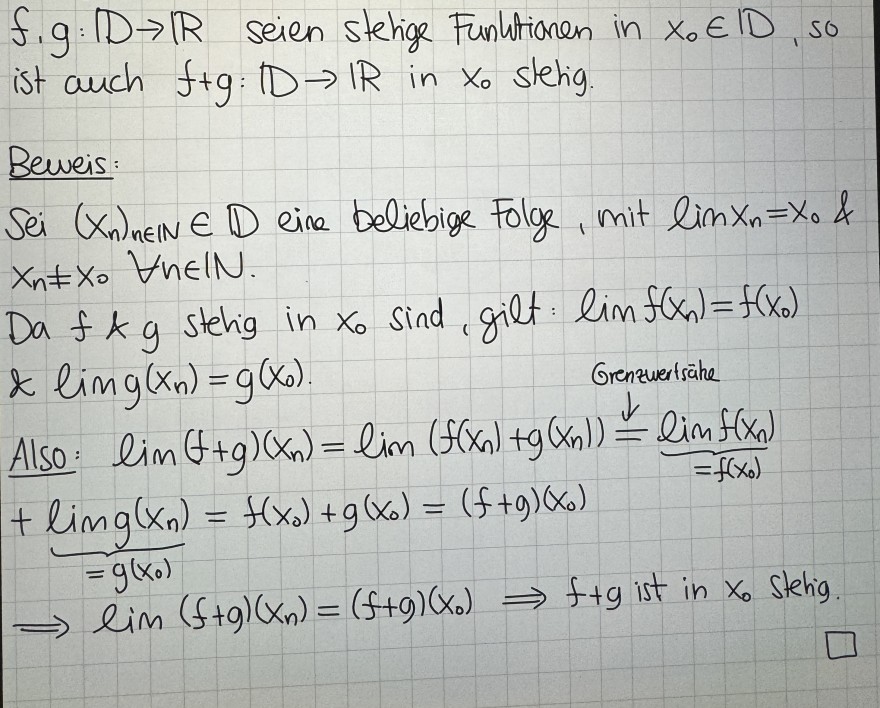 f,g: D→ℝ seien stetige Funktionen in x₀ ∈ D, so
ist auch f+g: D→ℝ in x₀ stetig.
Beweis:
Sei (xₙ)ₙ∈ℕ ∈ D eine beliebige Folge, mit lim xₙ = x₀ &
xₙ ≠ x₀ ∀n∈ℕ.
Da f & g stetig in x₀ sind, gilt: lim f(xₙ) = f(x₀)
& lim g(xₙ) = g(x₀).
Grenzwertsätze
↓
Also: lim (f+g)(xₙ) = lim (f(xₙ) + g(xₙ)) = lim f(xₙ)
= f(x₀)
+ lim g(xₙ) = f(x₀) + g(x₀) = (f+g)(x₀)
= g(x₀)
⟹ lim (f+g)(xₙ) = (f+g)(x₀) ⟹ f+g ist in x₀ stetig.
□